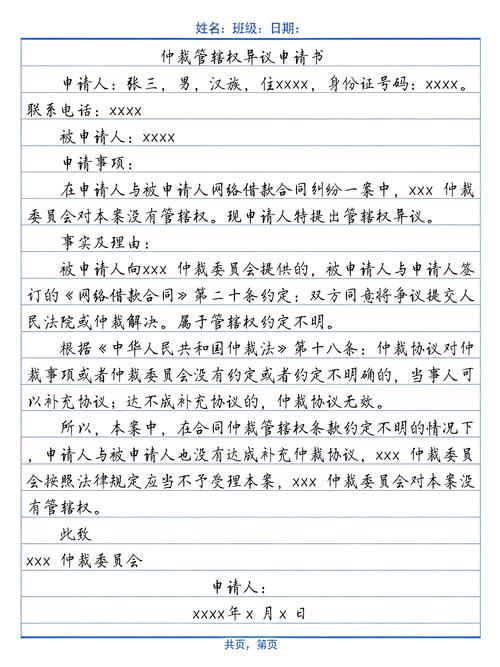 姓名：班级：日期：
仲裁管辖权异议申请书
申请人：张三，男，汉族，住xxxx，身份证号码：xxxx。
联系电话：xxxx
被申请人：xxxx
申请事项：
在申请人与被申请人网络借款合同纠纷一案中，xxx 仲裁
委员会对本案没有管辖权。现申请人特提出管辖权异议。
事实及理由：
被申请人向xxx 仲裁委员会提供的，被申请人与申请人签
订的《网络借款合同》第二十条约定：双方同意将争议提交人
民法院或仲裁解决。属于管辖权约定不明。
根据《中华人民共和国仲裁法》第十八条：仲裁协议对仲
裁事项或者仲裁委员会没有约定或者约定不明确的，当事人可
以补充协议；达不成补充协议的，仲裁协议无效。
所以，本案中，在合同仲裁管辖权条款约定不明的情况下
，申请人与被申请人也没有达成补充仲裁协议，xxx 仲裁委员
会按照法律规定应当不予受理本案，xxx 仲裁委员会对本案没
有管辖权。
此致
xxx 仲裁委员会
申请人：
xxxx年 x 月 x 日
共页，第页